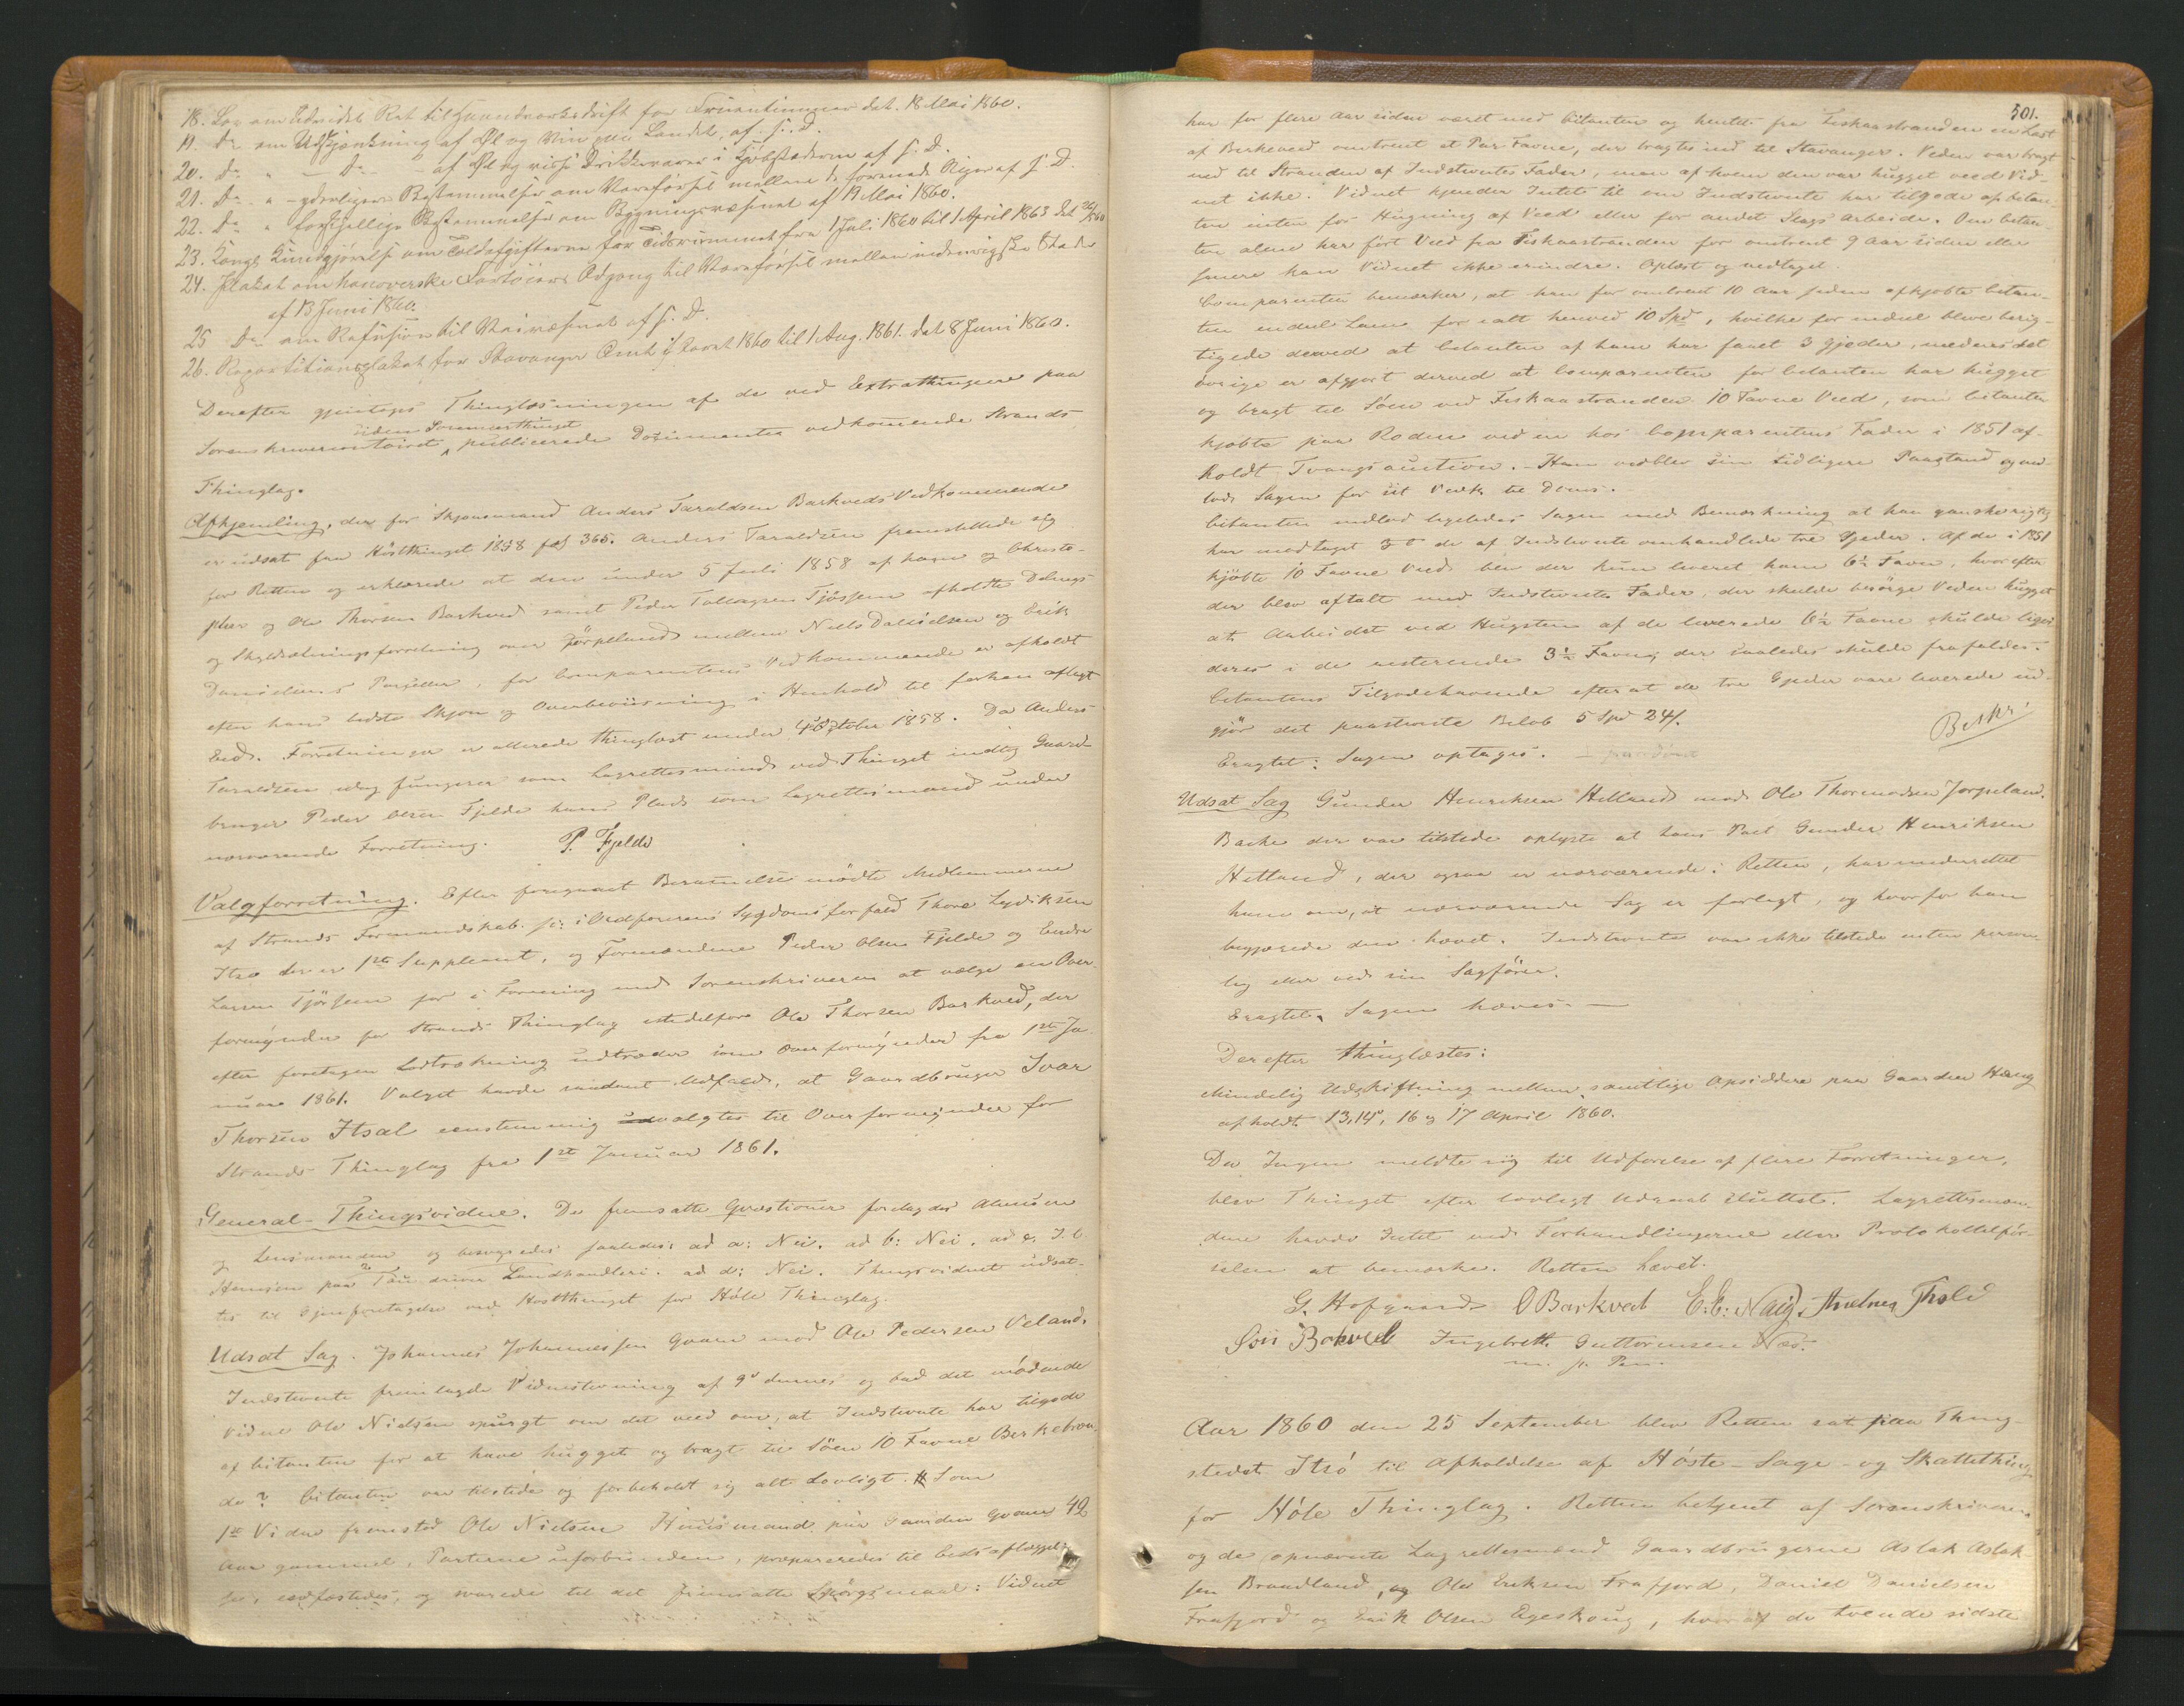 18. Lov om udvidet Ret til Haandværksdrift for Fruentimmer dat. 18 Mai 1860.
19. Do om Udskjænkning af Øl og Vin paa Landet, af s. D.
20. Do " - Do - af Øl og visse Drikkevarer i Kjøbstæderne af s. D.
21. Do " - yderligere Bestemmelser om Vareførsel mellem de forenede Riger af s. D.
22. Do " forskjellige Bestemmelser om Bygningsvæsenet af 19 Mai 1860.
23. Kongl. Kundgjørelse om Toldafgifterne for Tidsrummet fra 1 Juli 1860 til 1 April 1863 dat 26/5 1860
24. Plakat om hanoverske Fartøiers Adgang til Vareførsel mellem indenrigske Steder
af 13 Juni 1860.
25 Do om Refusion til Veivæsenet af s. D.
26. Repartitionsplakat for Stavanger Amt for Aaret 1860 til 1 Aug. 1861. dat 8 Juni 1860.
Derefter gjentoges Thinglæsningen af de ved Extrathingene paa
siden Sommerthinget
Sorenskrivercontoiret, publicerede Documenter vedkommende Strands
Thinglag.
Afhjemling, der for Skjønsmand Anders Taraldsen Barkveds Vedkommende
er udsat fra Høstthinget 1858 fol 365. Anders Taraldsen fremstillede sig
for Retten og erklærede at den under 5 Juli 1858 af ham og Christo-
pher og Ole Thorsen Barkved samt Peder Tollagsen Tjøssem afholdte Delings
og Skyldsætningsforretning over Jørpeland mellem Niels Danielsen og Erik
Danielsens Parseller, for Comparentens Vedkommende er afholdt
efter hans bedste Skjøn og Overbeviisning i Henhold til forhen aflagt
Eed. Forretningen er allerede thinglæst under 4 October 1858. Da Anders
Taraldsen idag fungerer som Lagrettesmand ved Thinget indtog Gaard-
bruger Peder Olsen Fjelde hans Plads som Lagrettesmand under
nærværende Forretning. P. Fjelde
Valgforretning. Efter foregaaet Berammelse mødte Medlemmerne
af Strands Formandskab. s: i Ordførerens Sygdoms forfald Thore Lydiksen
Itsø der er 1ste Suppleant, og Formændene Peder Olsen Fjelde og Endre
Larsen Tjøssem for i Forening med Sorenskriveren at vælge en Over-
formynder for Strands Thinglag istedetfor Ole Thorsen Barkved, der
efter foretagen Lodtrækning udtræder som Overformynder fra 1ste Ja-
nuar 1861. Valget havde saadant Udfald, at Gaardbruger Ivar
Thorsen Itsal eenstemmig valgtes til Overformynder for
Strands Thinglag fra 1ste Januar 1861.
General-Thingsvidne. De fremsatte Qvæstioner forelagdes Almuen
og Lensmanden og besvaredes saaledes: ad a: Nei. ad b: Nei. ad c: I. C
Hansen paa Tau driver Landhandleri. ad d: Nei. Thingsvidnet udsat-
tes til Gjenforetagelse ved Høstthinget for Høle Thinglag.
Udsat Sag. Johannes Johannessen Qvam mod Ole Pedersen Veland.
Indstevnte fremlagde Vidnestevning af 9de dennes og bad det mødende
Vidne Ole Nielsen spurgt om det veed om, at Indstevnte har tilgode
af Citanten for at have hugget og bragt til Søen 10 Favne Birkebræn-
de? Citanten var tilstede og forbeholdt sig alt Lovligt. Som
1ste Vidne fremstod Ole Nielsen Huusmand paa Gaarden Qvam 42
Aar gammel, Parterne uforbunden, præpareredes til Eeds aflæggel-
se, eedfæstedes, og svarede til det fremsatte Spørgsmaal: Vidnet
501.
har for flere Aar siden været med Citanten og hentet fra Fiskaastranden en Last
af Birkeveed omtrent et Par Favne, der bragtes ind til Stavanger. Veden var bragt
ned til Stranden af Indstevntes Fader, men af hvem den var hugget veed Vid-
net ikke. Vidnet kjender Intet til om Indstevnte har tilgode af Citan-
ten enten for Hugning af Veed eller for andet Slags Arbeide. Om Citan-
ten alene har ført Veed fra Fiskaastranden for omtrent 9 Aar siden eller
senere kan Vidnet ikke erindre. Oplæst og vedtaget.
Comparenten bemærker, at han for omtrent 10 Aar siden afkjøbte Citan-
ten endeel Lam for ialt henved 10 Spd, hvilke for endeel bleve berig-
tigede derved at Citanten af ham har faaet 3 Gjeder, medens det
øvrige er afgjort derved at Comparenten for Citanten har hugget
og bragt til Søen ved Fiskaastranden 10 Favne Veed, som Citanten
kjøbte paa Roden ved en hos Comparentens Fader i 1851 af-
holdt Tvangsauction. Han vedblev sin tidligere Paastand og ind-
lod Sagen for sit Vedk. til Doms.
Citanten indlod ligeledes Sagen med Bemærkning at han ganske rigtig
har modtaget de af Indstevnte omhandlede tre Gjeder. Af de i 1851
kjøbte 10 Favne Veed blev der kun leveret ham 6½ Favn, hvorefter
der blev aftalt med Indstevntes Fader, der skulde besørge Veden hugget
at Arbeidet ved Hugsten af de leverede 6½ Favne skulde liqvi-
deres i de resterende 3½ Favne, der saaledes skulde frafaldes.
Citantens Tilgodehavende efterat de tre Gjeder vare leverede ud-
gjør det paastevnte Beløb 5 Spd 24 s.
Eragtet: Sagen optages.
Beskr.
Udsat Sag Gunder Henriksen Helland mod Ole Thormodsen Jørpeland.
Barke der var tilstede oplyste at hans Part Gunder Henriksen
Helland, der ogsaa er nærværende i Retten, har underrettet
ham om, at nærværende Sag er forligt, og hvorfor han
begjærede den hævet. Indstevnte var ikke tilstede enten person-
lig eller ved sin Sagfører.
Eragtet: Sagen hæves. —
Derefter thinglæstes:
Mindelig Udskiftning mellem samtlige Opsiddere paa Gaarden Haug
afholdt 13, 14de, 16 og 17 April 1860.
Da Ingen meldte sig til Udførelse af flere Forretninger,
blev Thinget efter lovligt Udraab sluttet. Lagrettesmæn-
dene havde Intet ved Forhandlingerne eller Protokoltilfør-
selen at bemærke. Retten hævet.
G. Hofgaard O Barkved E. E: Naig.
Ingebreth Guttormsen Næs.
m. p. Pen.
Aar 1860 den 25 September blev Retten sat paa Thing-
stedet Itsø til Afholdelse af Høste-Sage- og Skattething
for Høle Thinglag. Retten betjent af Sorenskriveren
og de opnævnte Lagrettesmænd Gaardbrugerne Aslak Aslak-
sen Braadland, og Ole Eriksen Frafjord, Daniel Danielsen
Frafjord og Erik Olsen Egeskoug, hvoraf de tvende sidste